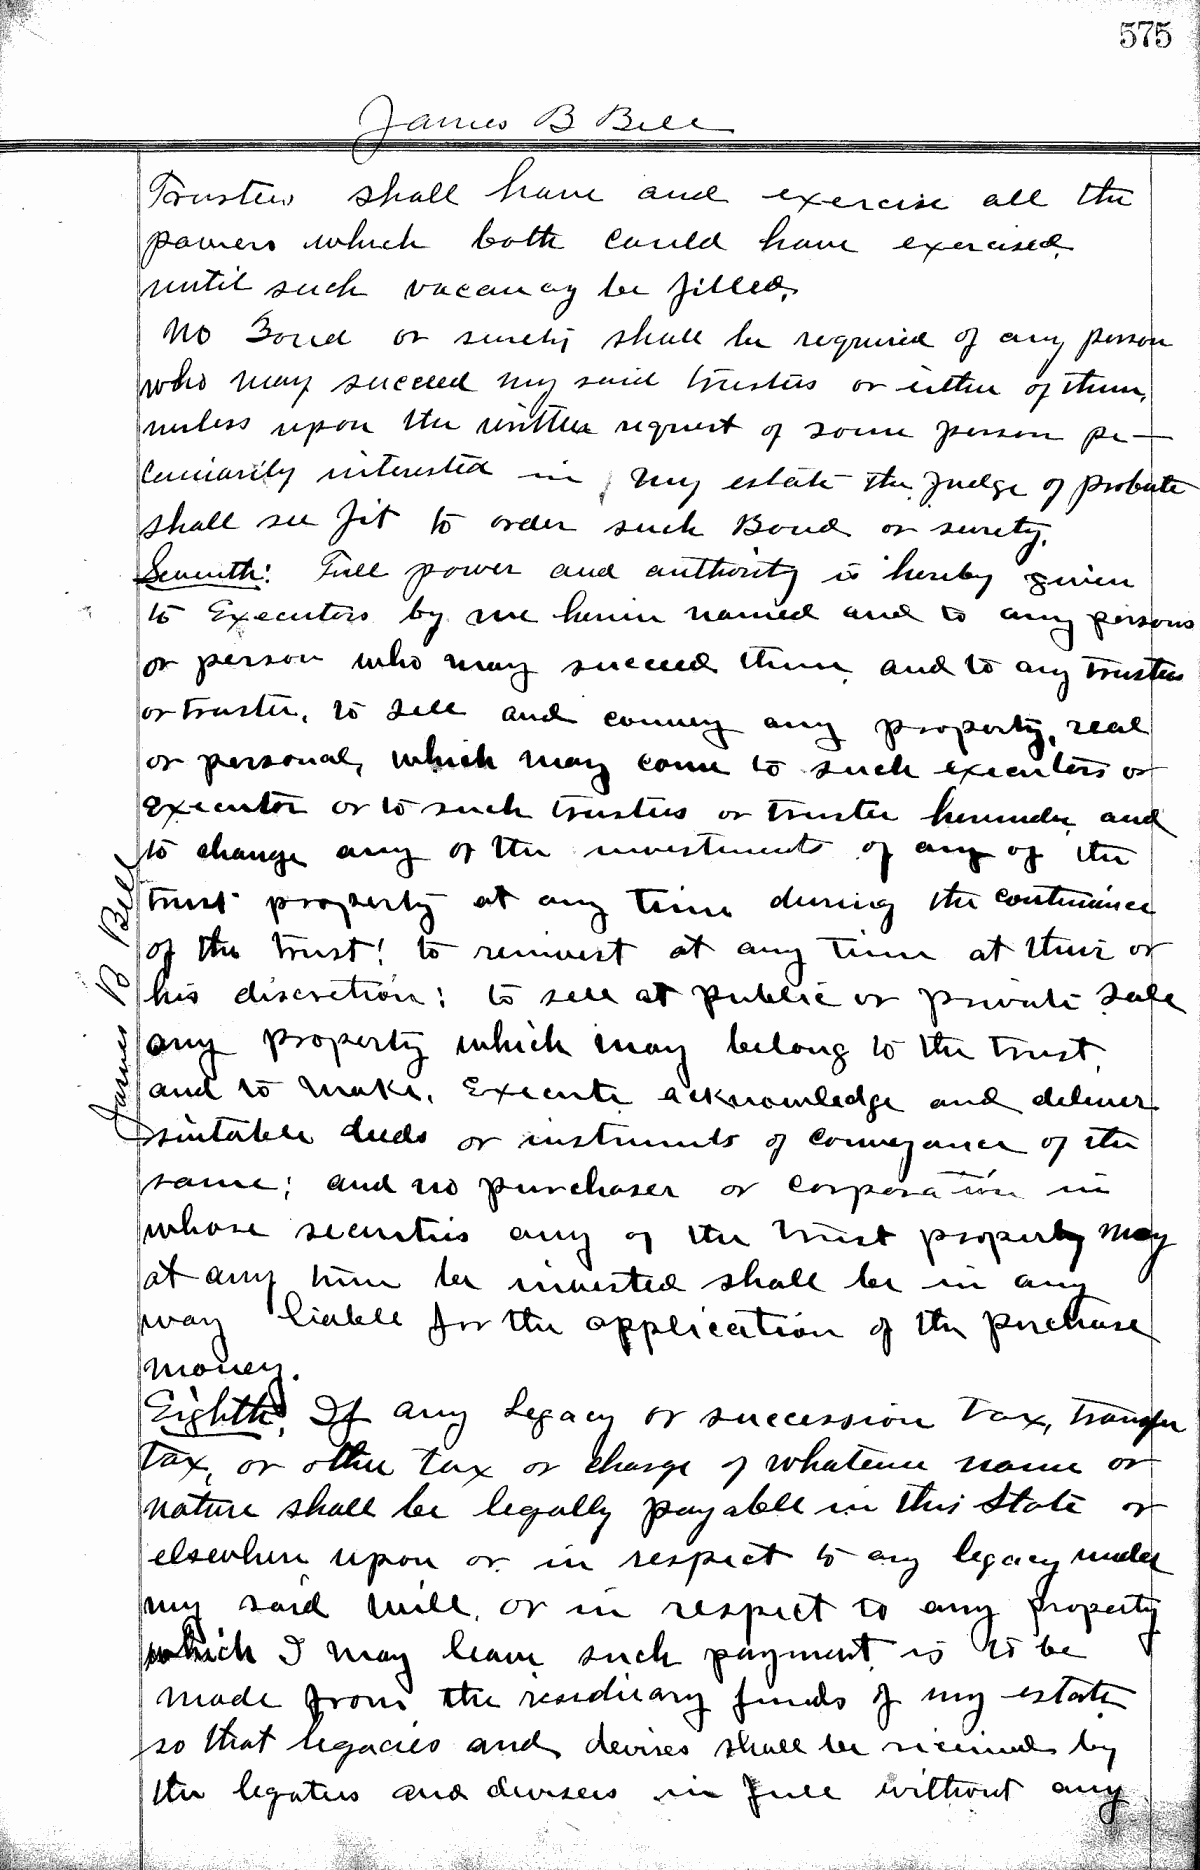 575
James B Bell
Trustees shall have and exercise all the
powers which both could have exercised
until such vacancy be filled.
No Bond or surety shall be required of any person
who may succeed my said trustees or either of them,
unless upon the written request of some person pe-
cuniarily interested in my estate the Judge of probate
shall see fit to order such Bond or surety.
Seventh: Full power and authority is hereby given
to Executors by me herein named and to any persons
or person who may succeed them, and to any trustees
or trustee, to sell and convey any property, real
or personal, which may come to such executors or
Executor or to such trustees or trustee hereunder, and
to change any of the investments of any of the
trust property at any time during the continuance
of the trust; to reinvest at any time at their or
his discretion; to sell at public or private sale
any property which may belong to the trust,
and to make, Execute, acknowledge and deliver
suitable deeds or instruments of conveyance of the
same; and no purchaser or corporation in
whose securities any of the trust property may
at any time be invested shall be in any
way liable for the application of the purchase
money.
James B Bell
Eighth, If any Legacy or succession tax, transfer
tax, or other tax or charge of whatever name or
nature shall be legally payable in this State or
elsewhere upon or in respect to any legacy under
my said will, or in respect to any property
which I may leave such payment is to be
made from the residuary funds of my estate
so that legacies and devises shall be received by
the legatees and devisees in full without any